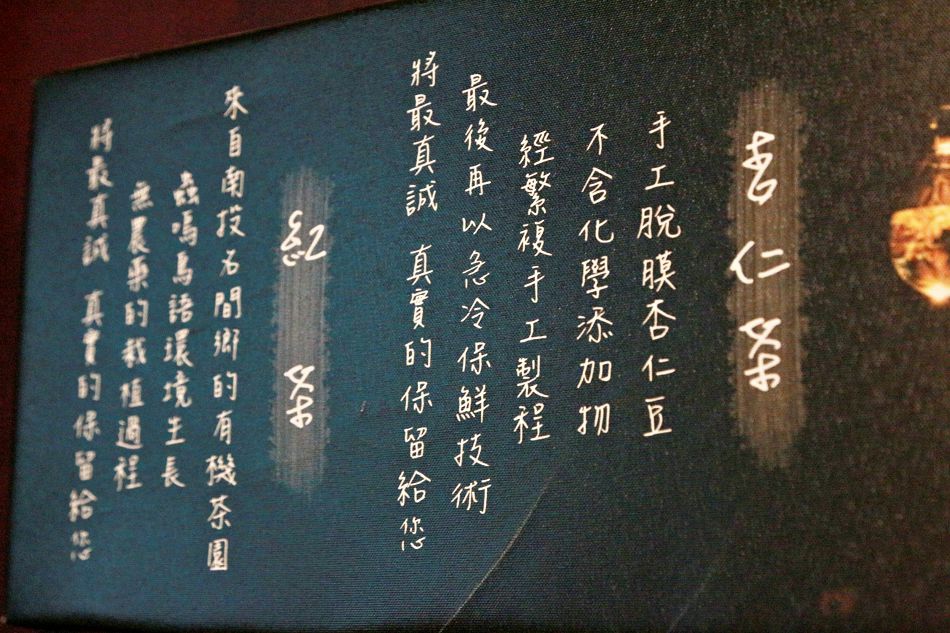 杏仁茶
手工脫膜杏仁豆
不含化學添加物
經繁複手工製程
最後再以急冷保鮮技術
將最真誠 真實的保留給您
紅茶
來自南投名間鄉的有機茶園
蟲鳴鳥語環境生長
無農藥的栽植過程
將最真誠 真實的保留給您